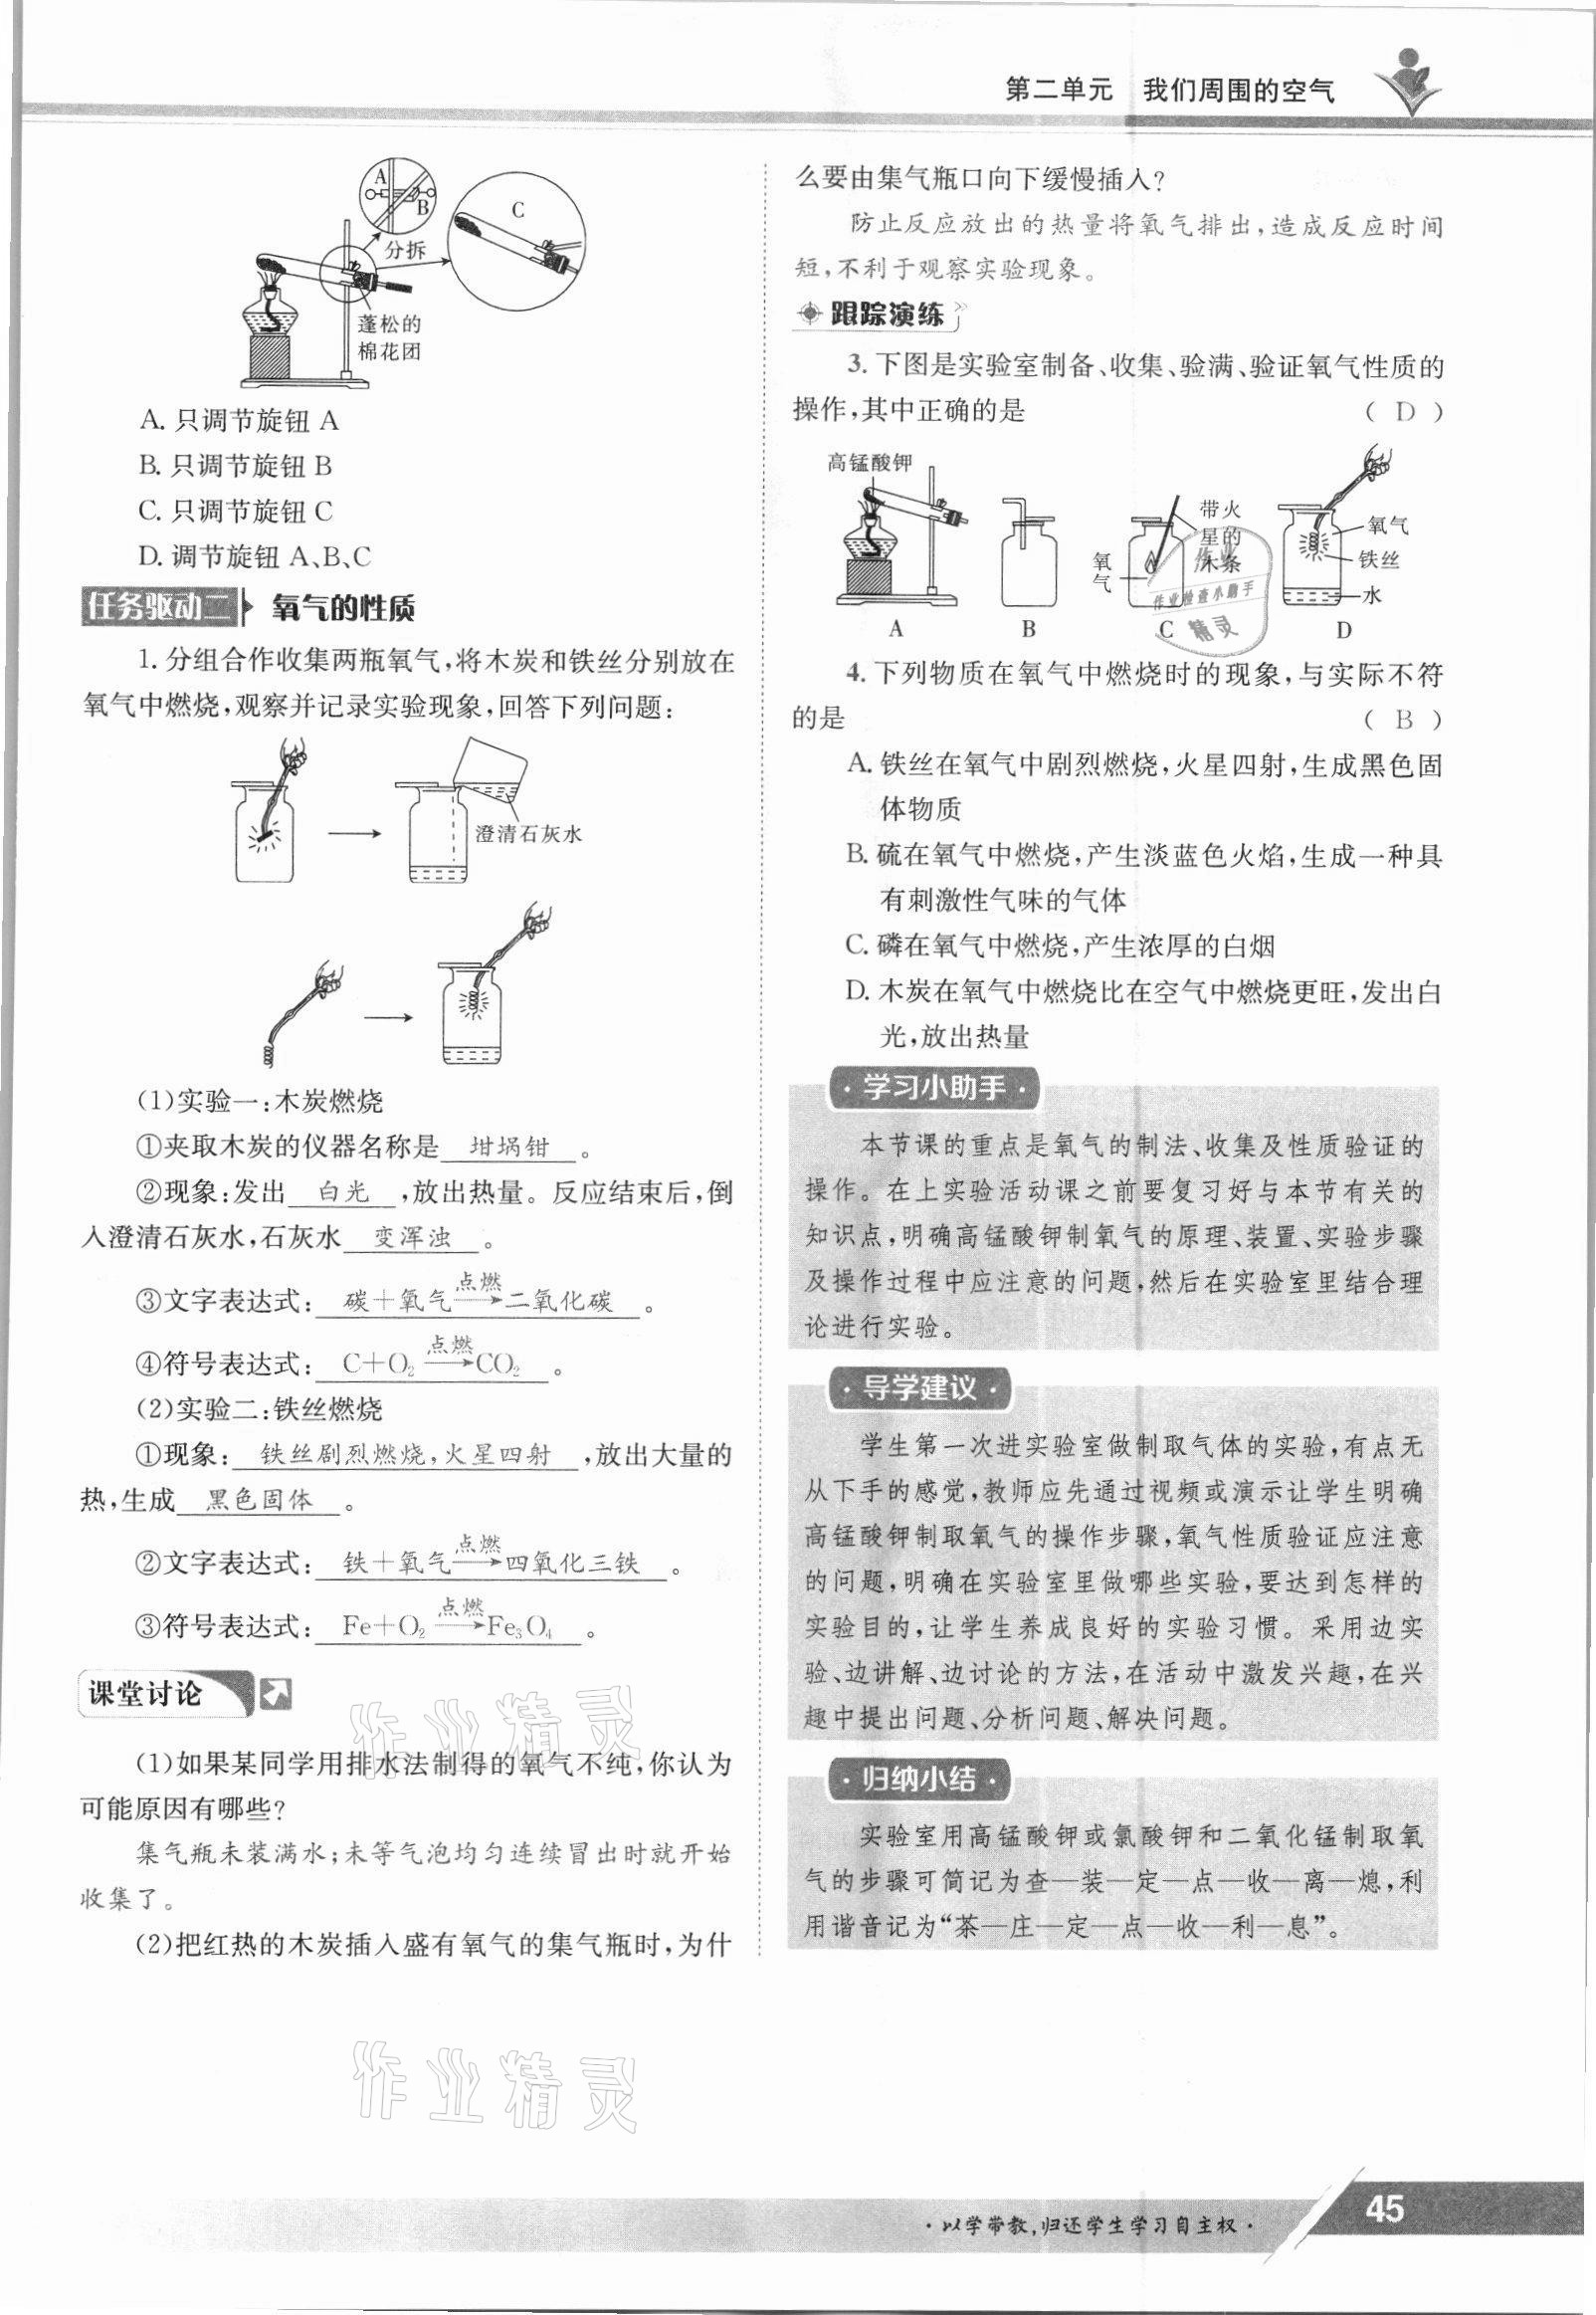 第二单元 我们周围的空气
A
B
C
分拆
蓬松的
棉花团
A. 只调节旋钮 A
B. 只调节旋钮 B
C. 只调节旋钮 C
D. 调节旋钮 A、B、C
任务驱动二 氧气的性质
1. 分组合作收集两瓶氧气,将木炭和铁丝分别放在
氧气中燃烧,观察并记录实验现象,回答下列问题:
澄清石灰水
(1)实验一:木炭燃烧
①夹取木炭的仪器名称是 坩埚钳 。
②现象:发出 白光 ,放出热量。反应结束后,倒
入澄清石灰水,石灰水 变浑浊 。
③文字表达式: 碳+氧气 点燃→ 二氧化碳 。
④符号表达式: C+O₂ 点燃→ CO₂ 。
(2)实验二:铁丝燃烧
①现象: 铁丝剧烈燃烧,火星四射 ,放出大量的
热,生成 黑色固体 。
②文字表达式: 铁+氧气 点燃→ 四氧化三铁 。
③符号表达式: Fe+O₂ 点燃→ Fe₃O₄ 。
课堂讨论
(1)如果某同学用排水法制得的氧气不纯,你认为
可能原因有哪些?
集气瓶未装满水;未等气泡均匀连续冒出时就开始
收集了。
(2)把红热的木炭插入盛有氧气的集气瓶时,为什
么要由集气瓶口向下缓慢插入?
防止反应放出的热量将氧气排出,造成反应时间
短,不利于观察实验现象。
跟踪演练
3. 下图是实验室制备、收集、验满、验证氧气性质的
操作,其中正确的是 ( D )
高锰酸钾
带火
星的
木条
氧
气
氧气
铁丝
水
A B C D
作业
作业检查小助手
精灵
4. 下列物质在氧气中燃烧时的现象,与实际不符
的是 ( B )
A. 铁丝在氧气中剧烈燃烧,火星四射,生成黑色固
体物质
B. 硫在氧气中燃烧,产生淡蓝色火焰,生成一种具
有刺激性气味的气体
C. 磷在氧气中燃烧,产生浓厚的白烟
D. 木炭在氧气中燃烧比在空气中燃烧更旺,发出白
光,放出热量
·学习小助手·
本节课的重点是氧气的制法、收集及性质验证的
操作。在上实验活动课之前要复习好与本节有关的
知识点,明确高锰酸钾制氧气的原理、装置、实验步骤
及操作过程中应注意的问题,然后在实验室里结合理
论进行实验。
·导学建议·
学生第一次进实验室做制取气体的实验,有点无
从下手的感觉,教师应先通过视频或演示让学生明确
高锰酸钾制取氧气的操作步骤,氧气性质验证应注意
的问题,明确在实验室里做哪些实验,要达到怎样的
实验目的,让学生养成良好的实验习惯。采用边实
验、边讲解、边讨论的方法,在活动中激发兴趣,在兴
趣中提出问题、分析问题、解决问题。
·归纳小结·
实验室用高锰酸钾或氯酸钾和二氧化锰制取氧
气的步骤可简记为查—装—定—点—收—离—熄,利
用谐音记为“茶—庄—定—点—收—利—息”。
作业精灵
作业精灵
·以学带教,归还学生学习自主权·
45